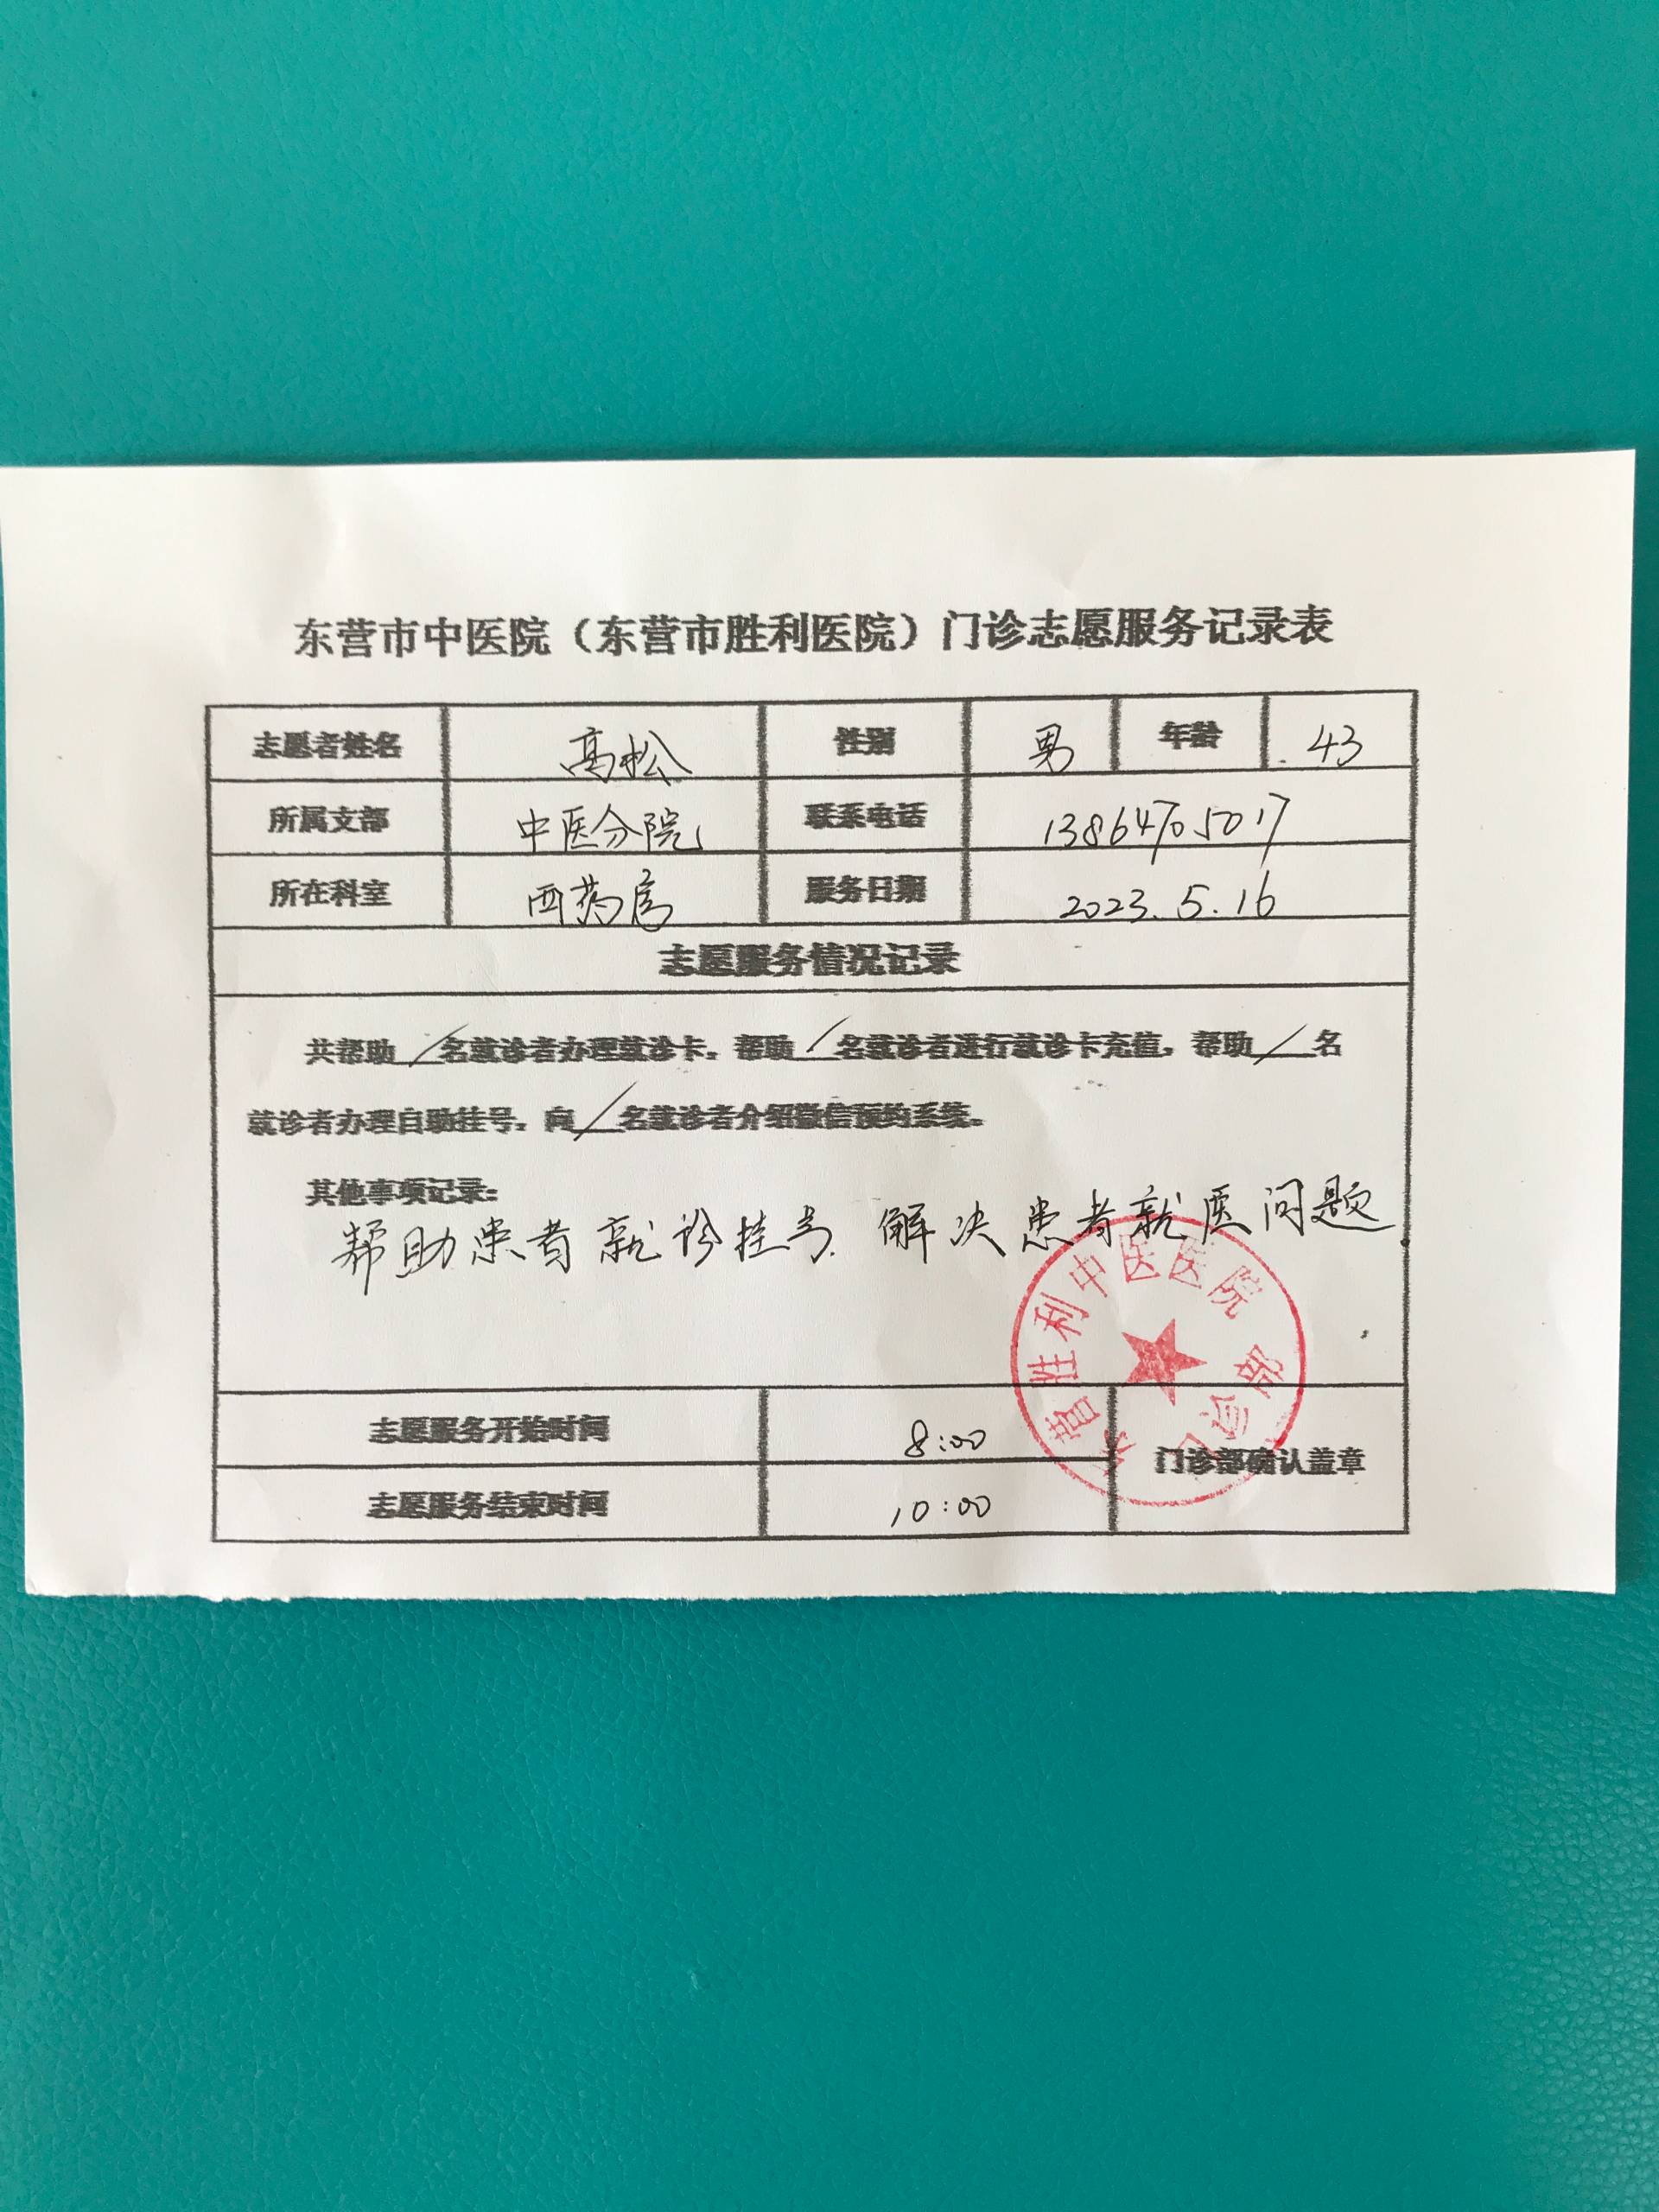 东营市中医院（东营市胜利医院）门诊志愿服务记录表
志愿者姓名 高松 性别 男 年龄 43
所属支部 中医分院 联系电话 13864705017
所在科室 西药房 服务日期 2023.5.16
志愿服务情况记录
共帮助／名就诊者办理就诊卡，帮助／名就诊者进行就诊卡充值，帮助／名
就诊者办理自助挂号，向／名就诊者介绍微信预约系统。
其他事项记录：
帮助患者就诊挂号、解决患者就医问题.
东营胜利中医医院
门诊部
志愿服务开始时间 8:00
门诊部确认盖章
志愿服务结束时间 10:00